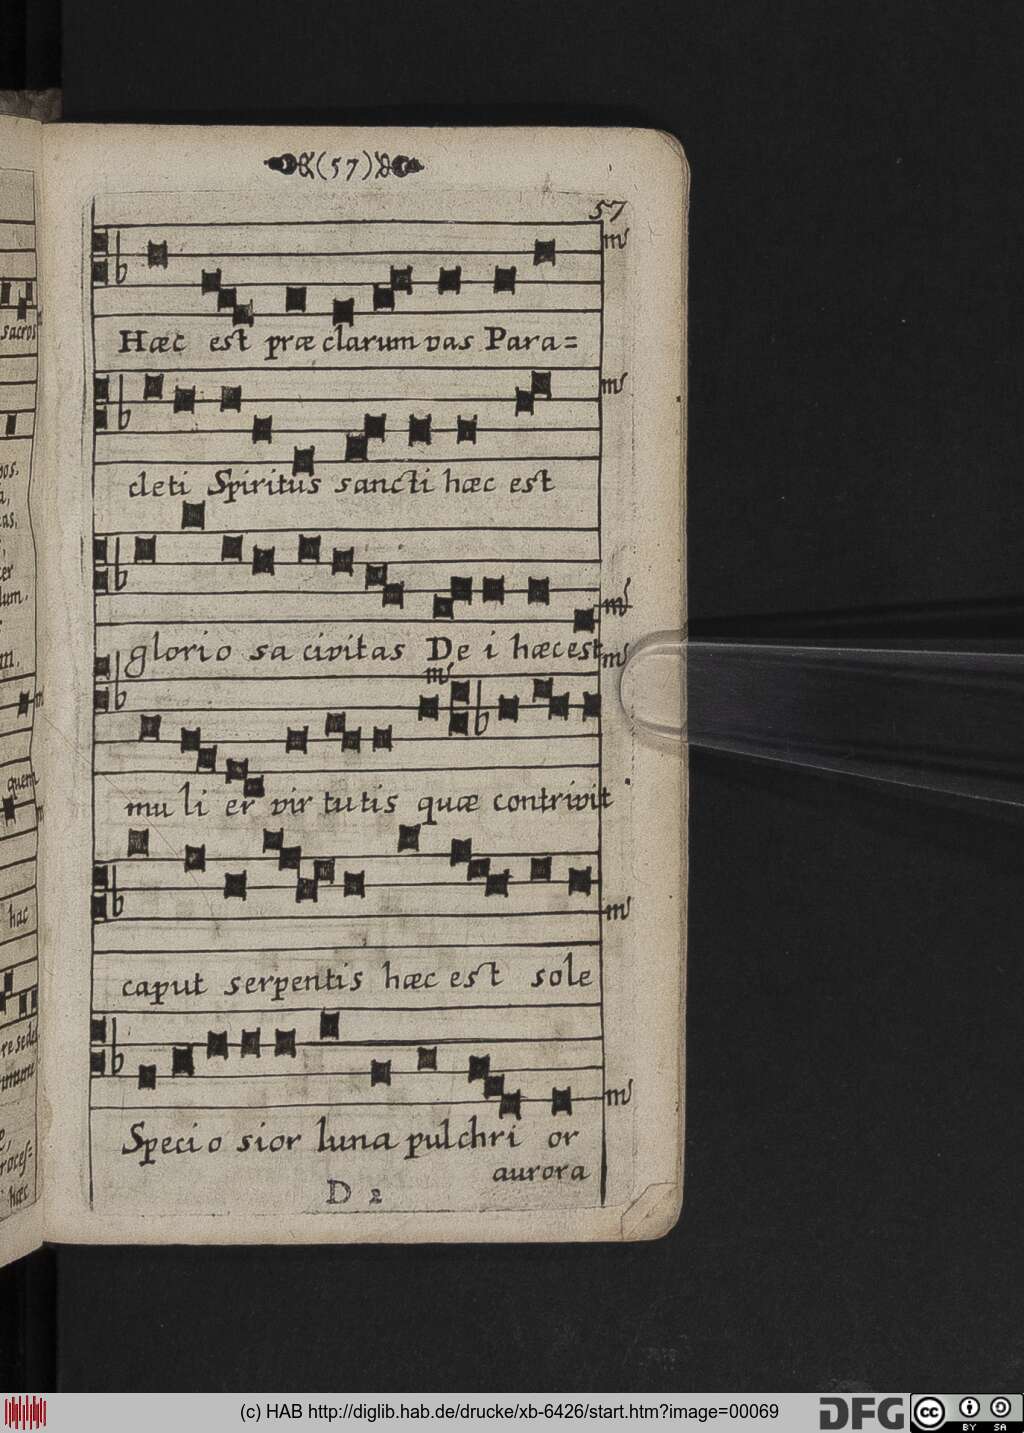 (57)
57
Hæc est præ clarum vas Para=
cleti Spiritus sancti hæc est
glorio sa civitas De i hæc est
mu li er vir tutis quæ contrivit
caput serpentis hæc est sole
Speci o sior luna pulchri or
aurora
D 2
sacros
quem
hac
hæc
(c) HAB http://diglib.hab.de/drucke/xb-6426/start.htm?image=00069
DFG
cc BY SA